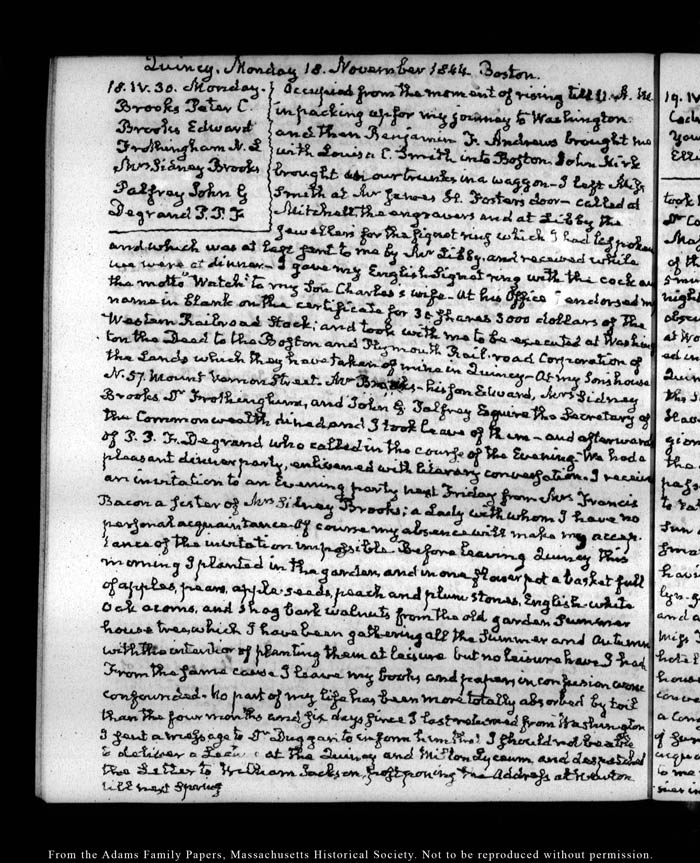 Quincy. Monday 18. November 1844. Boston.
18. IV. 30. Monday.
Brooks Peter C.
Brooks Edward
Frothingham N. L
Mrs Sidney Brooks
Palfrey John G
Degrand P. P. F
Occupied from the moment of rising till 11. A. M.
in packing up for my journey to Washington.
and then Benjamin F. Andrews brought me
with Louisa C. Smith into Boston. John Kirk
brought our trunks in a waggon. I left Miss
Smith at Mr James H. Foster's door - called at
Mitchell the engravers and at Libby the
jewellers for the signet ring which I had bespoken
and which was at last sent to me by Mr Libby, and received while
we were at dinner - I gave my English Signet ring with the cock and
the motto "Watch" to my Son Charles's wife. At his Office I endorsed my
name in blank on the certificate for 30 shares 3000 dollars of the
Western Railroad Stock; and took with me to be executed at Washing
ton the Deed to the Boston and Plymouth Rail-road Corporation of
the Lands which they have taken of mine in Quincy - At my Sons house
N. 57. Mount Vernon Street. Mr Brooks - his son Edward, Mrs Sidney
Brooks Dr Frothingham, and John G Palfrey Esquire the Secretary of
the Commonwealth dined and I took leave of them - and afterwards
of P. P. F. Degrand who called in the course of the Evening - We had a
pleasant dinner party, enlivened with literary conversation. I received
an invitation to an Evening party next Friday from Mrs Francis
Bacon a sister of Mrs Sidney Brooks; a Lady with whom I have no
personal acquaintance. Of course my absence will make my accep-
tance of the invitation impossible. Before leaving Quincy this
morning I planted in the garden, and in one flower pot a basket full
of apples, pears, apple-seeds, peach and plum stones, English white
Oak acorns, and Shagbark walnuts from the old garden Summer
house tree, which I have been gathering all the Summer and Autumn
with the intention of planting them at leisure but no leisure have I had
From the same cause I leave my books and papers in confusion worse
confounded. No part of my life has been more totally absorbed by toil
than the four months and six days since I last returned from Washington
I sent a message to Dr Duggan to inform him that I should not be able
to deliver a Lecture at the Quincy and Milton Lyceum, and despatched
the Letter to William Jackson, postponing the Address at Newton
till next Spring
From the Adams Family Papers, Massachusetts Historical Society. Not to be reproduced without permission.